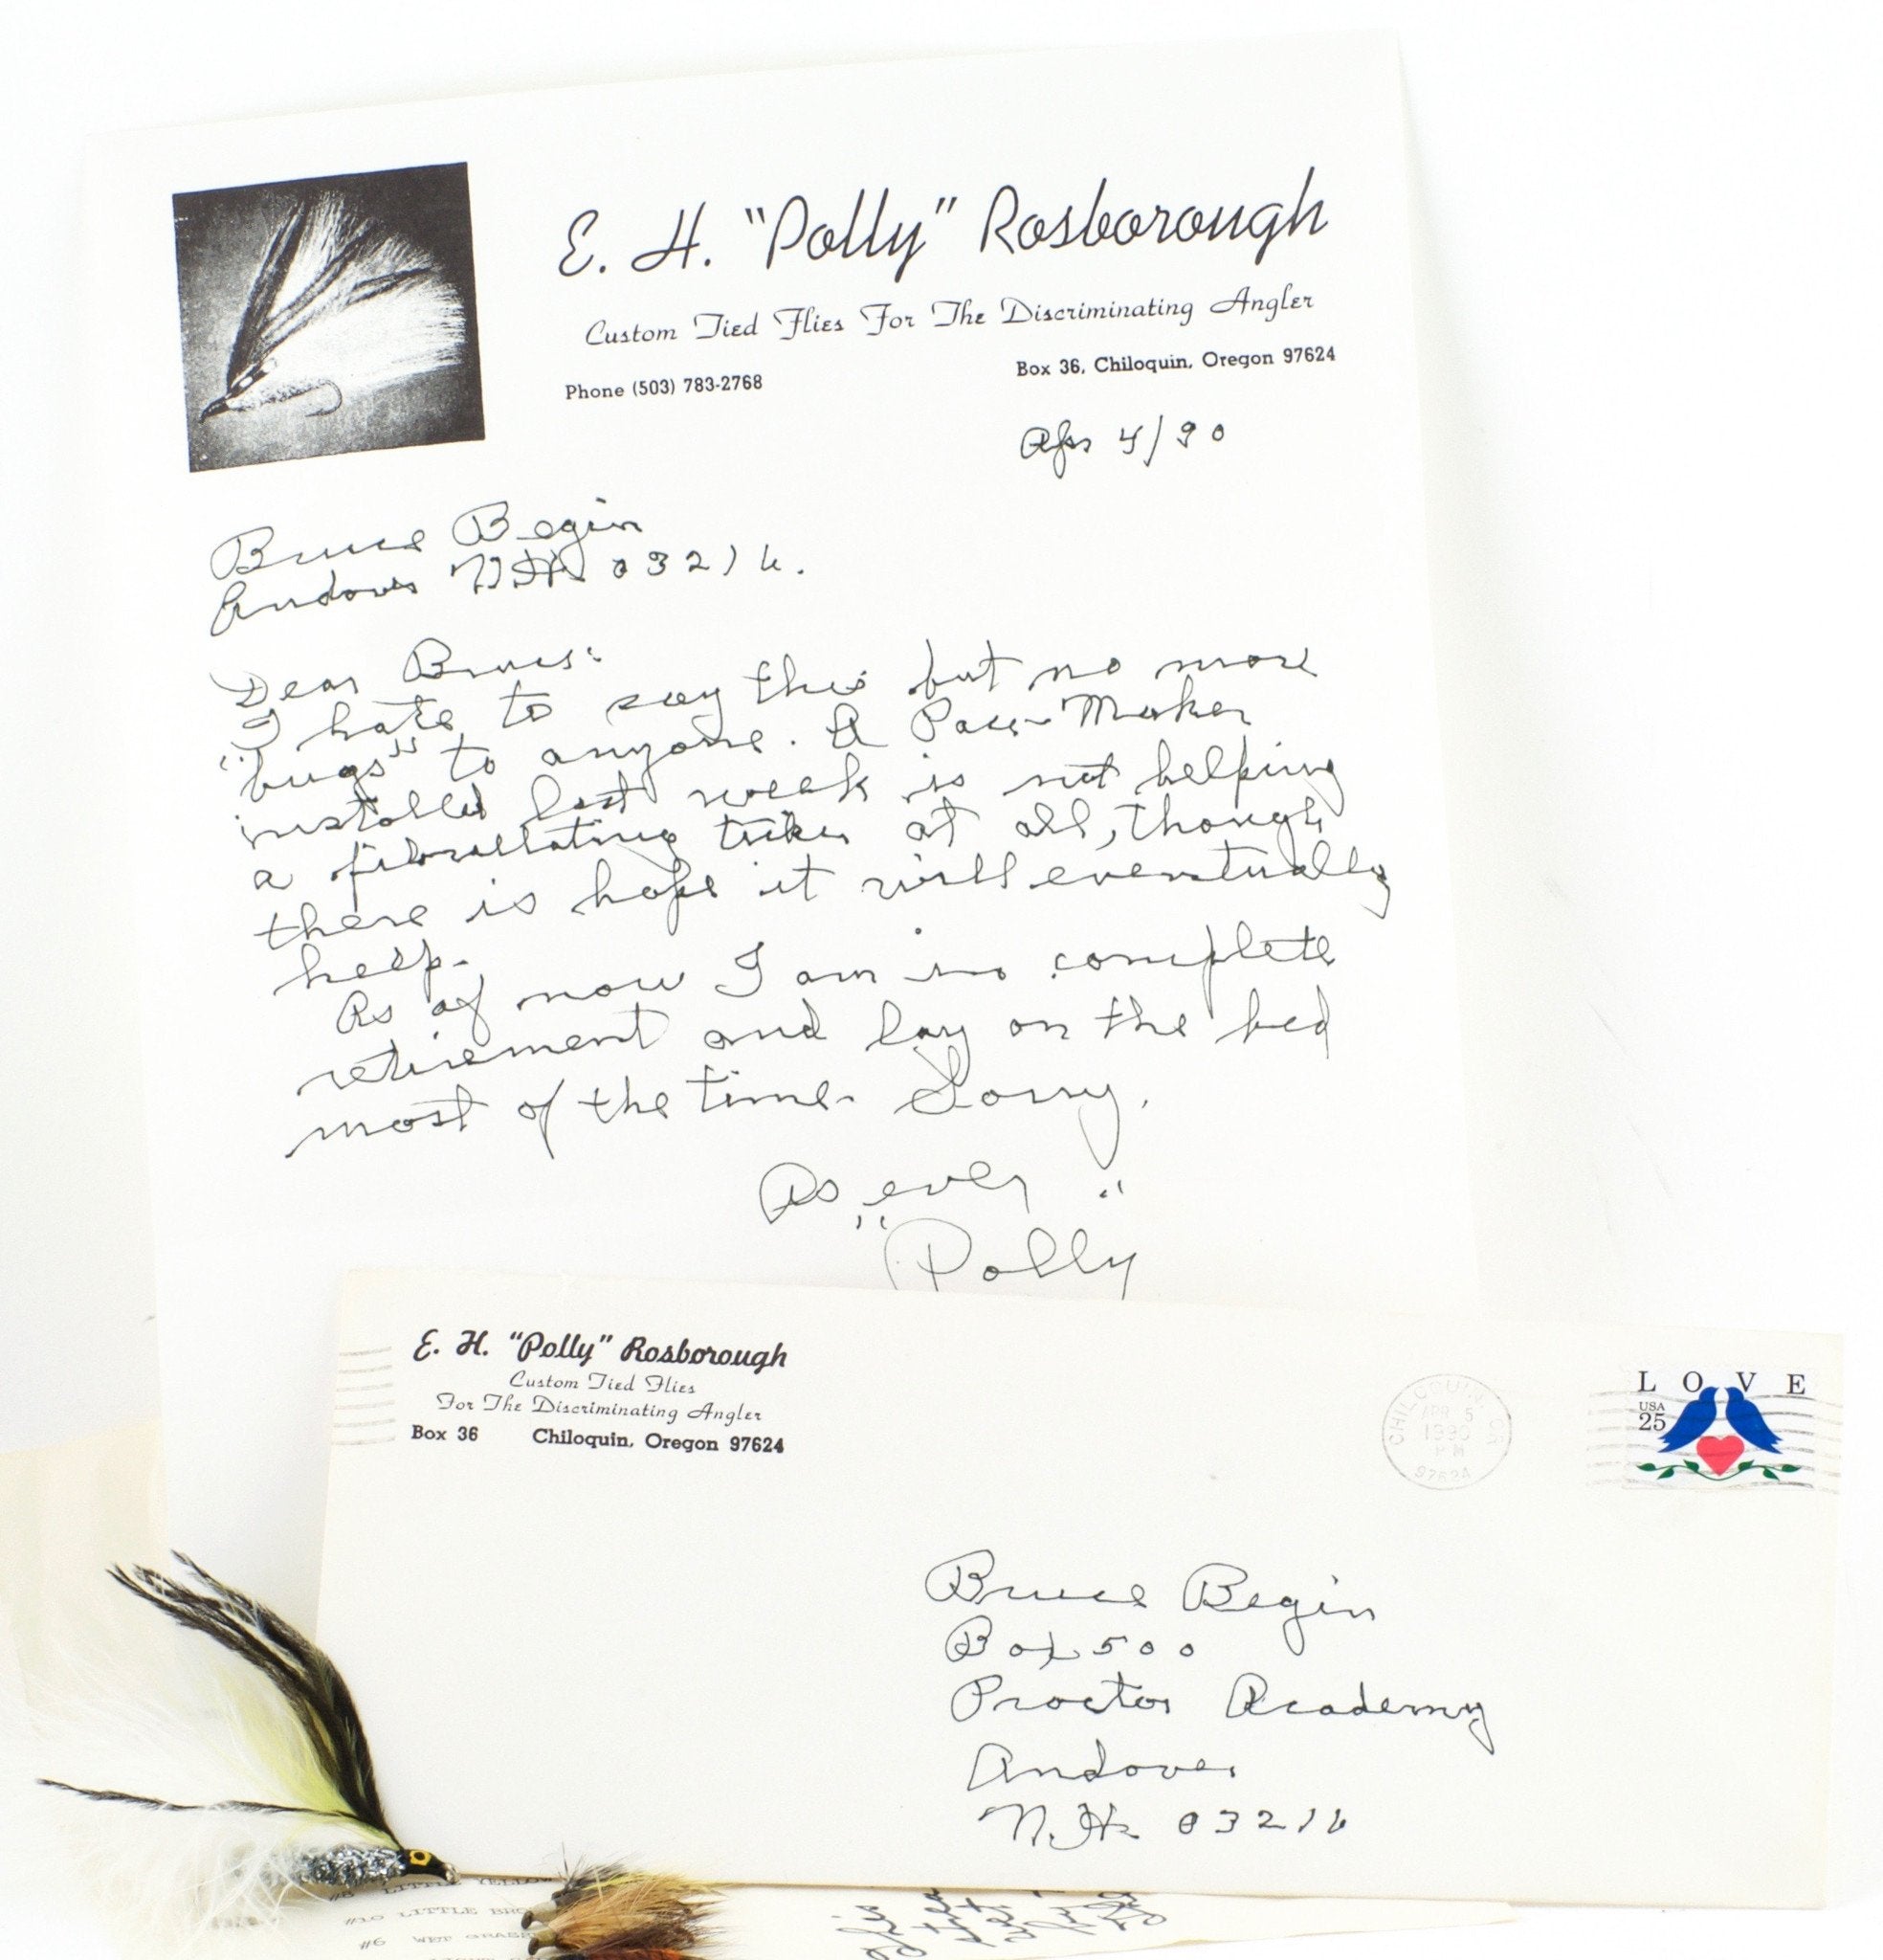 E. H. "Polly" Rosborough
Custom Tied Flies For The Discriminating Angler
Phone (503) 783-2768
Box 36, Chiloquin, Oregon 97624
Apr 4/90
Bruce Begin
Andover N.H. 03216.
Dear Bruce:
I hate to say this but no more
"bugs" to anyone. A Pace-Maker
installed last week is not helping
a fibrillating ticker at all, though
there is hope it will eventually
help.
As of now I am in complete
retirement and lay on the bed
most of the time. Sorry.
As ever
"Polly"
E. H. "Polly" Rosborough
Custom Tied Flies
For The Discriminating Angler
Box 36 Chiloquin, Oregon 97624
CHILOQUIN, OR
APR 5
1990
PM
97624
LOVE
USA
25
Bruce Begin
Box 500
Proctor Academy
Andover
N.H. 03216
#8 LITTLE YELLOW
#10 LITTLE BRO
#6 WET GRASS